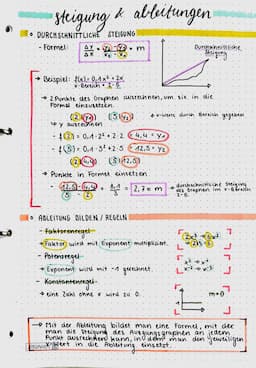 steigung & ableitungen
DURCHSCHNITTLICHE STEIGUNG
- Formel: Δy/Δx = y₂-y₁/x₂-x₁ = m
Durchschnittliche Steigung
→ Beispiel: f(x)= 0,1x³+2x
x-Bereich = 2-5
→ 2 Punkte des Graphen ausrechnen, um sie in die
Formel einzusetzen.
(2|y₁) (5|y₂) → x-Werte durch Bereich gegeben
→ y ausrechnen
- f(2) = 0,1·2³+2·2 = 4,4 = y₁
- f(5) = 0,1·5²+2·5 = 12,5 = y₂
(2|4,4) (5|12,5)
→ Punkte in Formel einsetzen
- 12,5-4,4/5-2 = 8,1/3 = 2,7 = m → durchschnittliche Steigung
des Graphen im x-Bereich
2-5.
ABLEITUNG BILDEN / REGELN
- Faktorenregel
→ Faktor wird mit Exponent multipliziert.
- Potenzregel
→ Exponent wird mit -1 gerechnet.
- Konstantenregel
→ eine Zahl ohne x wird zu 0.
m=0
→ Mit der Ableitung bildet man eine Formel, mit der
man die Steigung des Ausgangsgraphen an jedem
Punkt ausrechnen kann, indem man den jeweiligen
x-Wert in die Ableitung einsetzt.